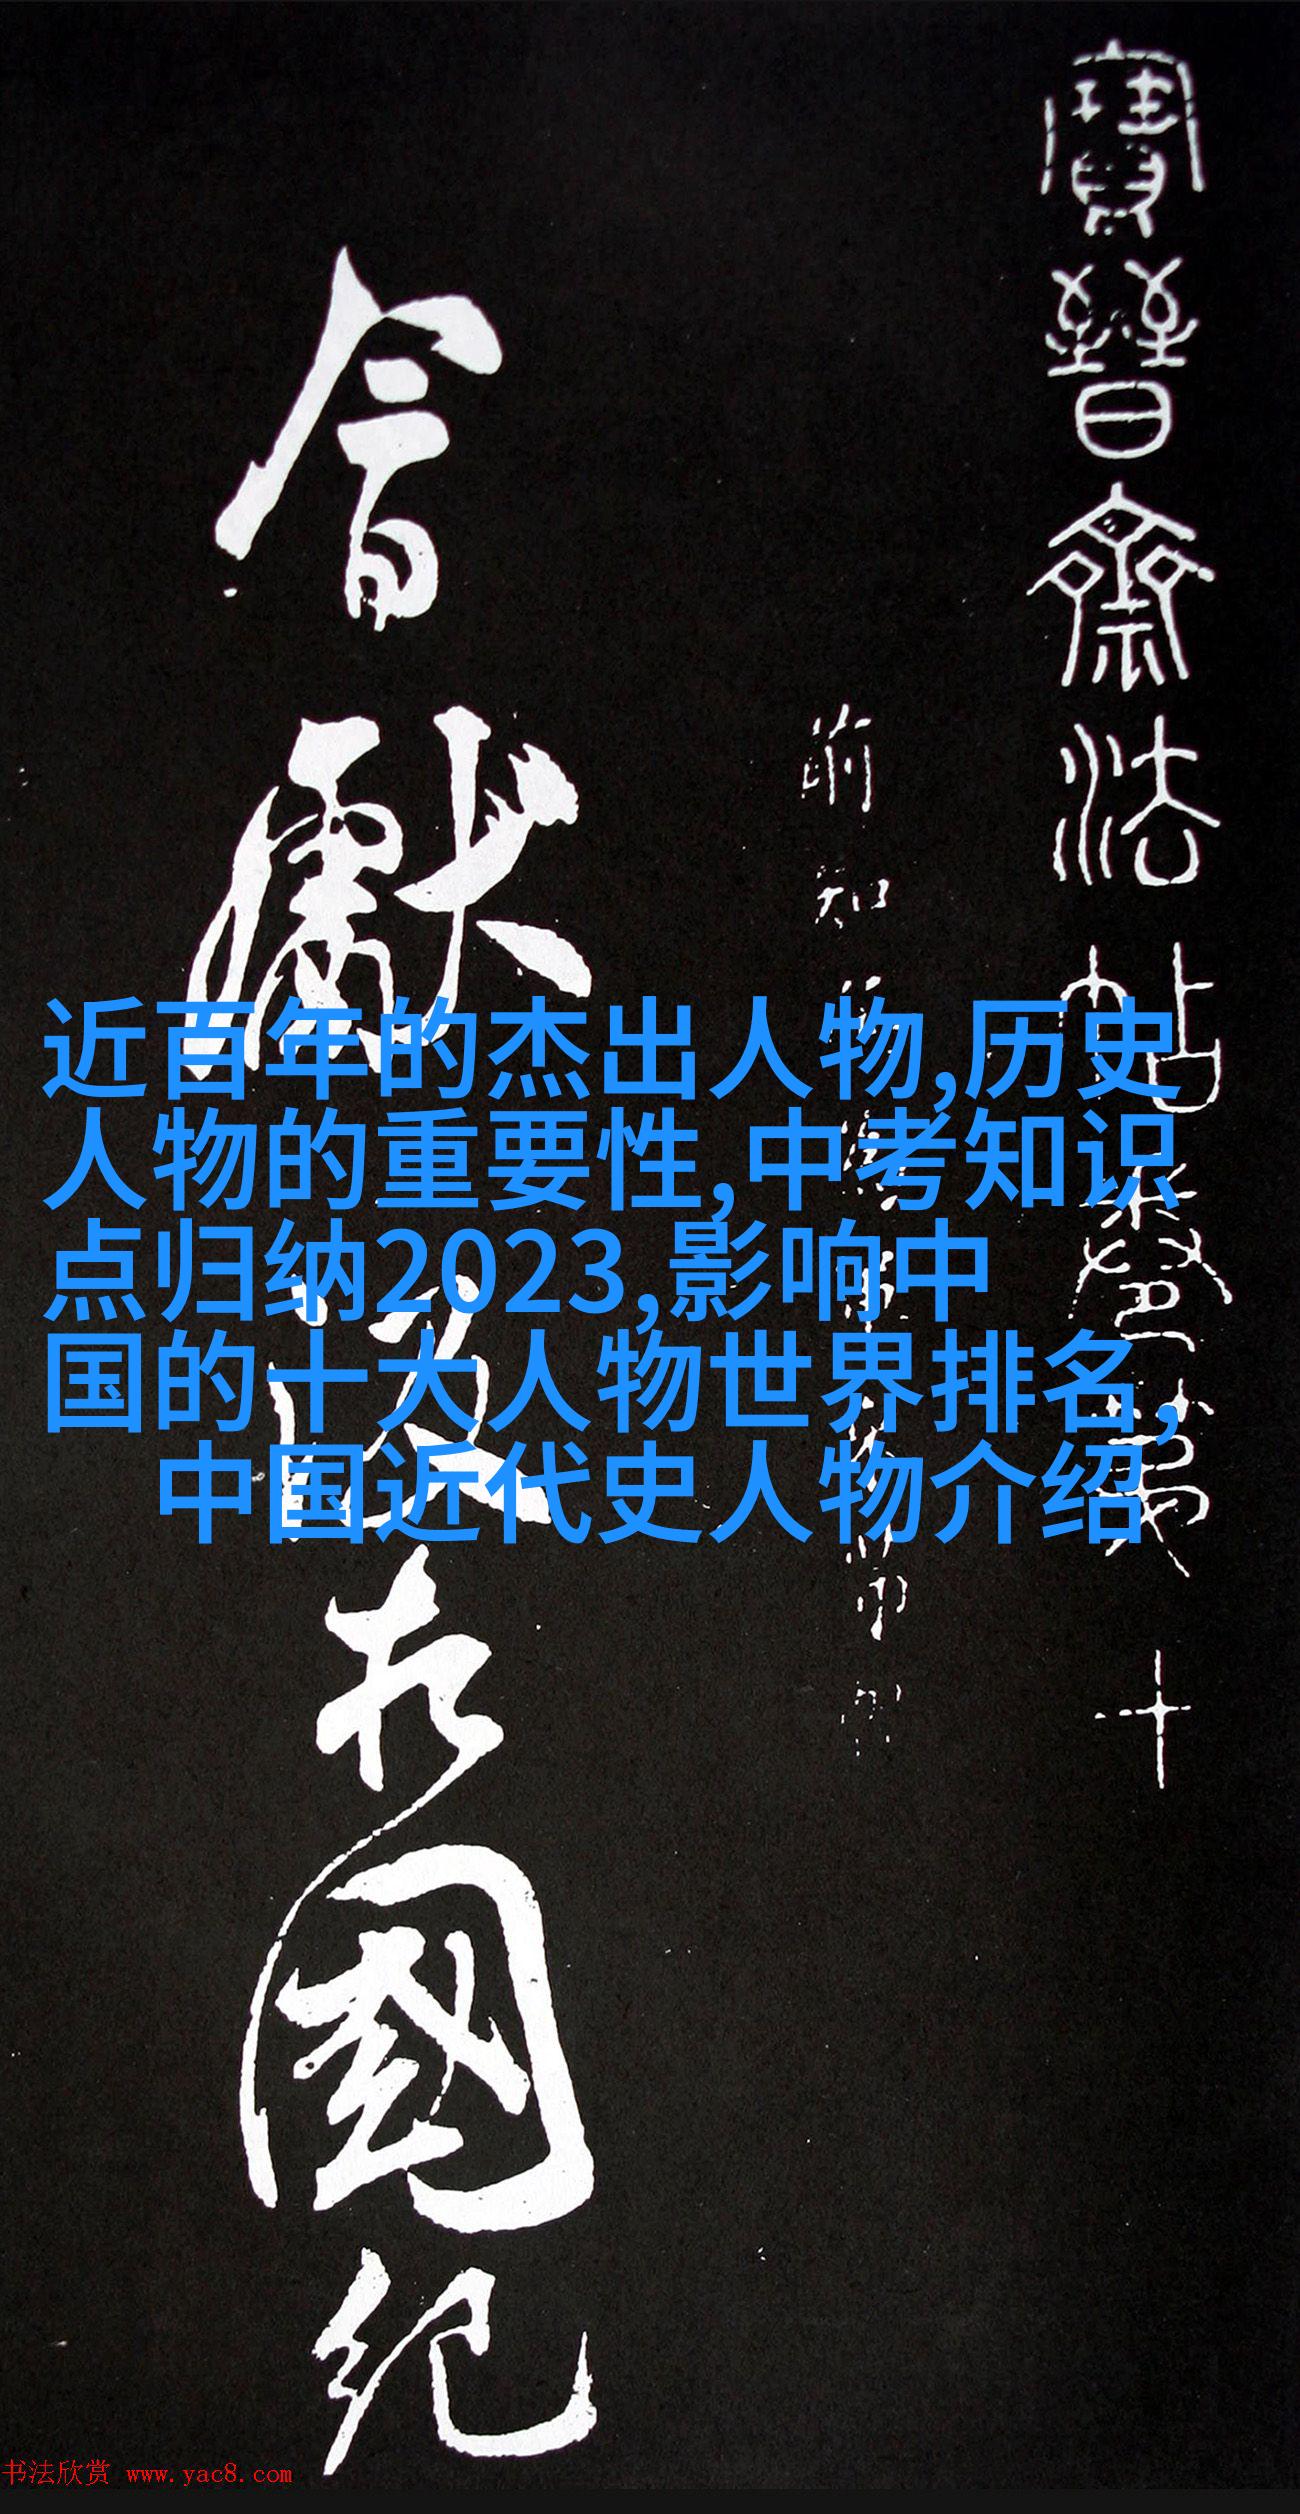 寶晉齋法帖卷第十
會獻汲于國紀
近百年的杰出人物,历史
人物的重要性,中考知识
点归纳2023,影响中
国的十大人物世界排名,
中国近代史人物介绍
书法欣赏 www.yac8.com